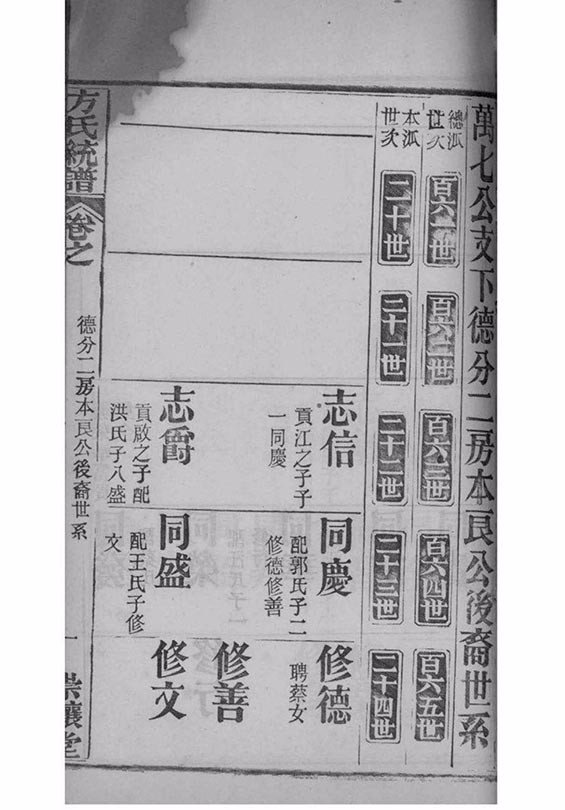 萬七公支下德分二房本良公後裔世系
總派世次
本派世次
百六一世
二十世
百六二世
二十一世
百六三世
二十二世
百六四世
二十三世
百六五世
二十四世
志信
貢江之子子一同慶
志爵
貢啟之子配洪氏子八盛
同慶
配郭氏子二修德修善
同盛
配王氏子修文
修德
聘蔡女
修善
修文
方氏統譜
卷之
德分二房本良公後裔世系
一
崇讓堂